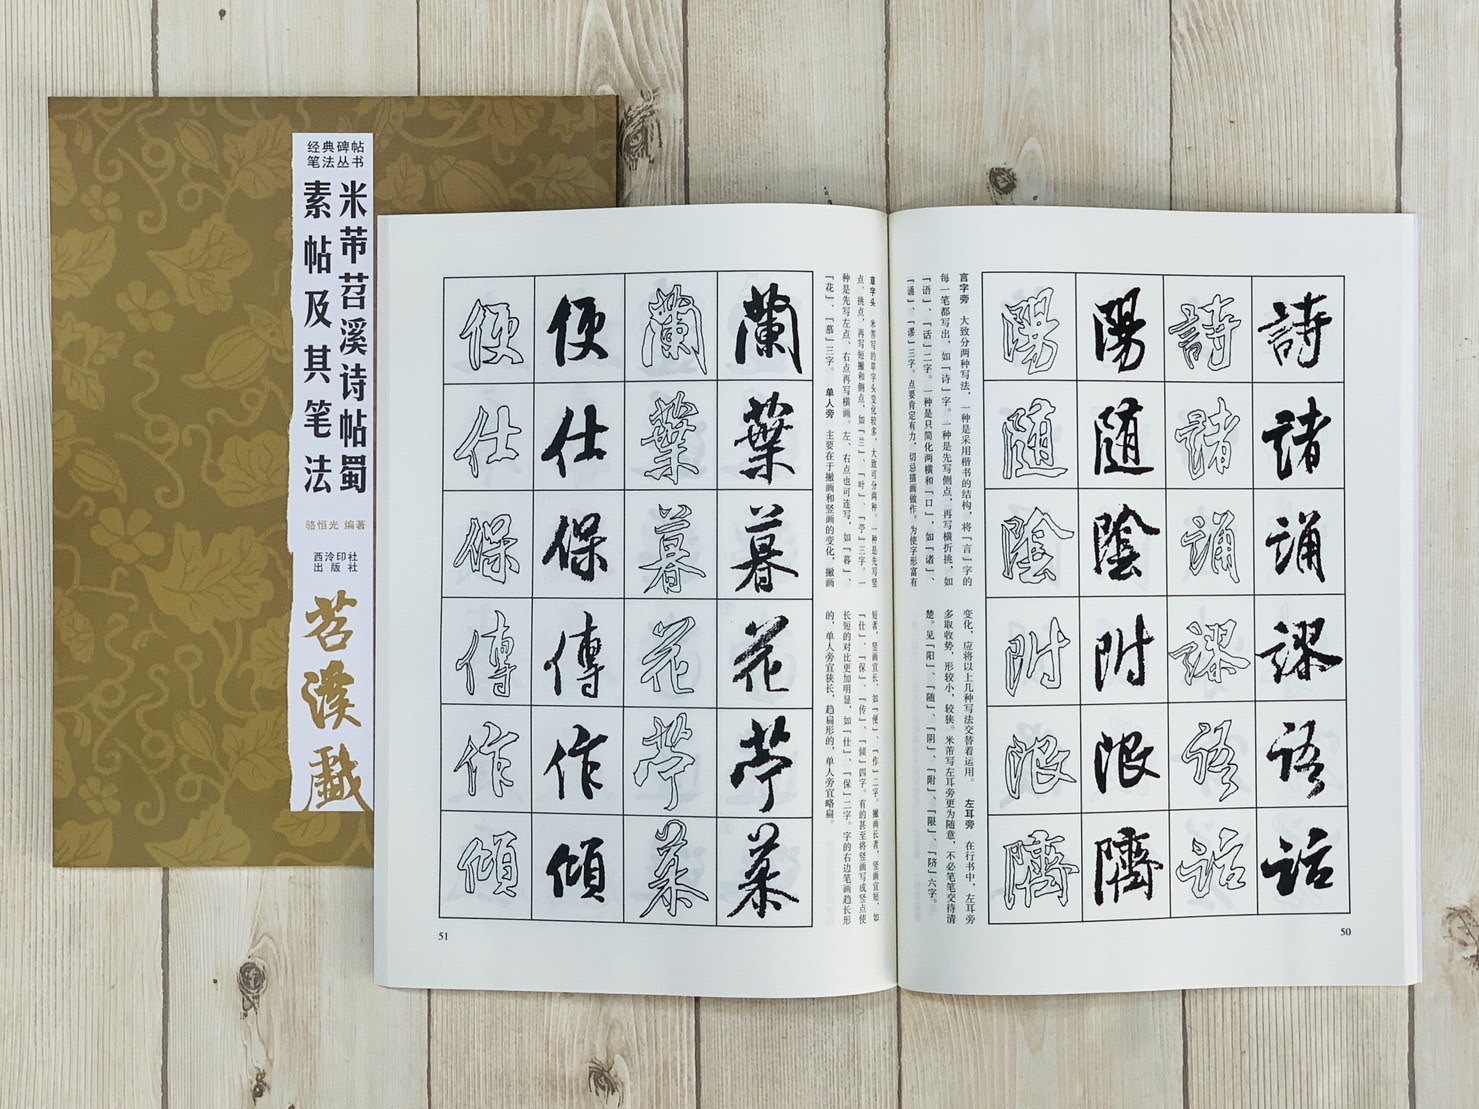 经典碑帖
笔法丛书
米芾苕溪诗帖蜀
素帖及其笔法
骆恒光 编著
西泠印社
出版社
苕溪戲
詩
諸
誦
謬
語
話
陽
随
陰
附
限
隮
言字旁 大致分两种写法，一种是采用楷书的结构，将「言」字的
每一笔都写出，如「诗」字。一种是先写侧点，再写横折挑，如
「语」、「话」二字。一种是只简化两横和「口」，如「诸」、
「诵」、「谬」三字。点要肯定有力，切忌描画做作。为使字形富有
变化，应将以上几种写法交替着运用。 左耳旁 在行书中，左耳旁
多取收势，形较小，较狭。米芾写左耳旁更为随意，不必笔笔交待清
楚。见「阳」、「随」、「阴」、「附」、「限」、「隮」六字。
50
草字头 米芾写的草字头变化较多，大致可分两种。一种是先写竖
点、挑点，再写短撇和侧点，如「兰」、「叶」、「苧」三字。一
种是先写左点、右点再写横画。左、右点也可连写，如「暮」、
「花」、「慕」三字。 单人旁 主要在于撇画和竖画的变化，撇画
短者，竖画宜长，如「便」、「作」二字。撇画长者，竖画宜短，如
「仕」、「保」、「传」、「倾」四字。有的甚至将竖画写成竖点使
长短的对比更加明显，如「仕」、「保」二字。字的右边笔画趋长形
的，单人旁宜狭长，趋扁形的，单人旁宜略扁。
蘭
葉
暮
花
苧
菜
便
仕
保
傳
作
傾
51